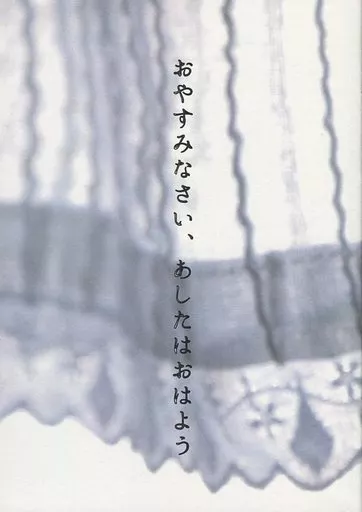 おやすみなさい、あしたはおはよう